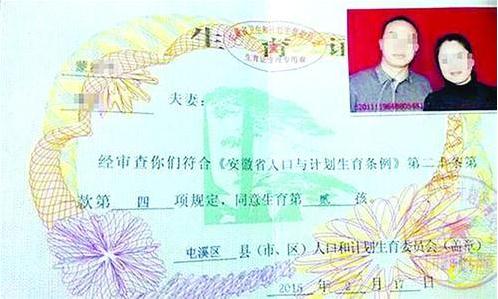 生育证
生育证管理专用章
夫妻：
经审查你们符合《安徽省人口与计划生育条例》第二十条第
款第 四 项规定，同意生育第 贰 孩。
屯溪区 县（市、区）人口和计划生育委员会（盖章）
2015 年 2 月 17 日